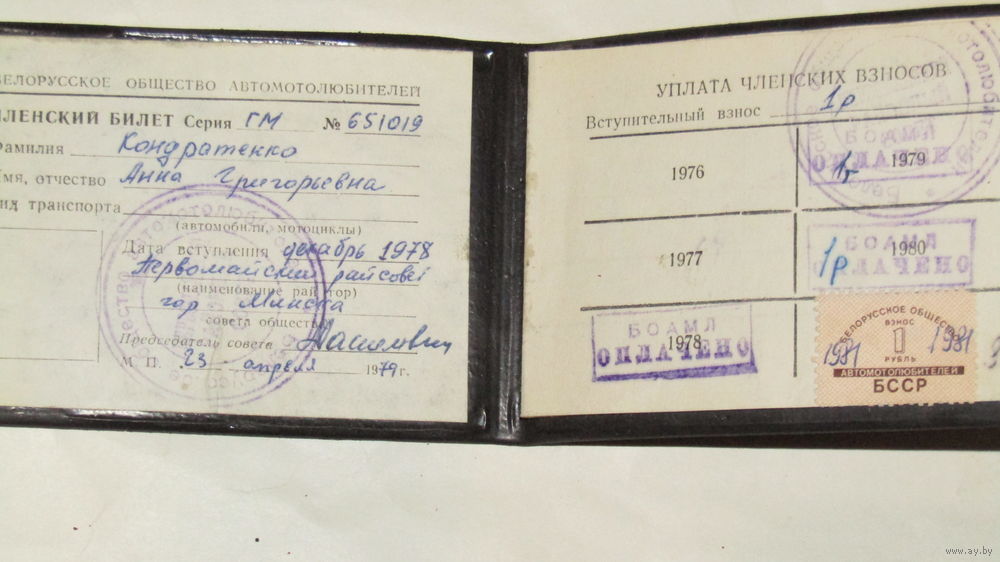 БЕЛОРУССКОЕ ОБЩЕСТВО АВТОМОТОЛЮБИТЕЛЕЙ
ЧЛЕНСКИЙ БИЛЕТ Серия ГМ № 651019
Фамилия Кондратенко
Имя, отчество Анна Григорьевна
Вид транспорта
(автомобили, мотоциклы)
Дата вступления декабрь 1978
Первомайский райсовет
(наименование рай (гор)
гор Минска
совета общества)
Председатель совета
М. П. 23 апреля 1979 г.
УПЛАТА ЧЛЕНСКИХ ВЗНОСОВ
Вступительный взнос 1р
БОАМЛ
1976 1р 1979
БОАМЛ
1977 1р 1980
БОАМЛ
1978
БЕЛОРУССКОЕ ОБЩЕСТВО
ВЗНОС
1981 1 1981
РУБЛЬ
АВТОМОТОЛЮБИТЕЛЕЙ
БССР
www.ay.by